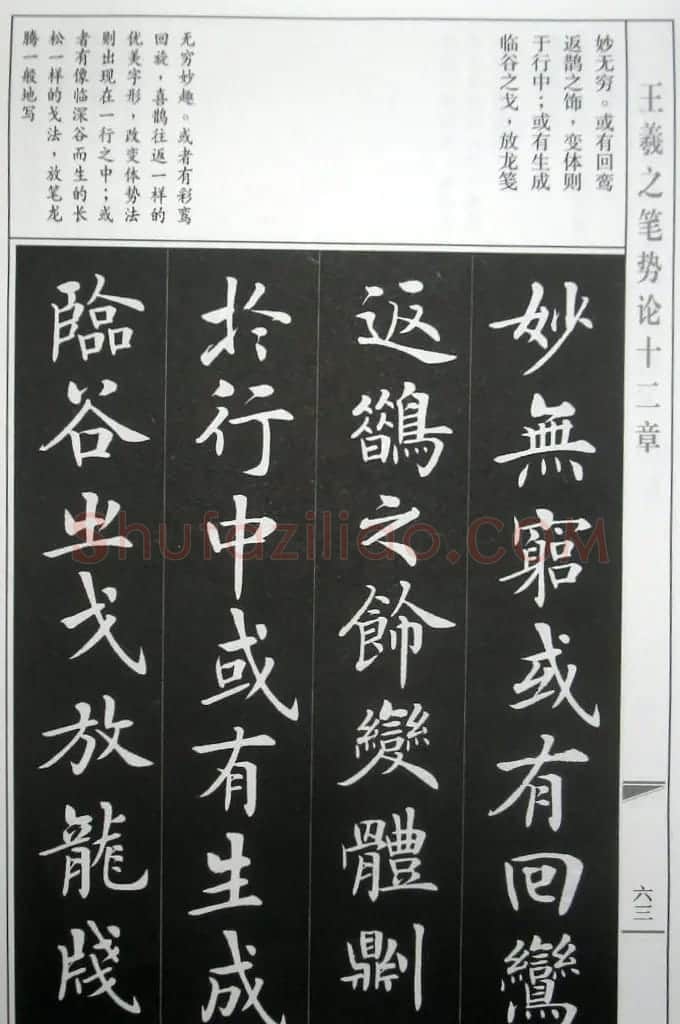 王羲之笔势论十二章
六三
妙无穷。或有回鸾
返鹊之饰，变体则
于行中；或有生成
临谷之戈，放龙笺
无穷妙趣。或者有彩鸾
回旋，喜鹊往返一样的
优美字形，改变体势法
则出现在一行之中；或
者有像临深谷而生的长
松一样的戈法，放笔龙
腾一般地写
妙無窮或有回鸞
返鵲之飾變體則
於行中或有生成
臨谷之戈放龍牋
Shufaziliao.com